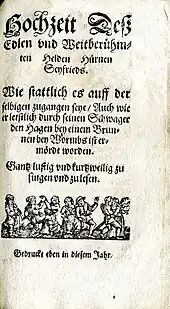 Hochzeit Deß
Edlen vnd Weitberühm-
ten Helden Hürnen
Seyfrieds.
Wie stattlich es auff der
selbigen zugangen seye / Auch wie
er letstlich durch seinen Schwager
den Hagen bey einem Brun-
nen bey Wormbs ist er-
mördt worden.
Gantz lustig vnd kurtzweilig zu
singen vnd zu lesen.
Gedruckt eben in diesem Jahr.